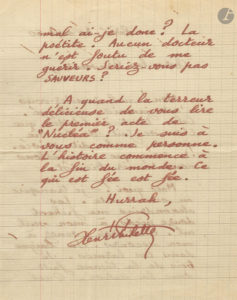 mal ai-je donc? La
poétite! Aucun docteur
n'est foutu de me
guérir. Seriez-vous pas
SAUVEURS?
A quand la terreur
délicieuse de vous lire
le premier acte de
"Nicléa"? Je suis à
vous comme personne.
L'histoire commence à
la fin du monde. Ce
qui est fée est fée.
Hurrah,